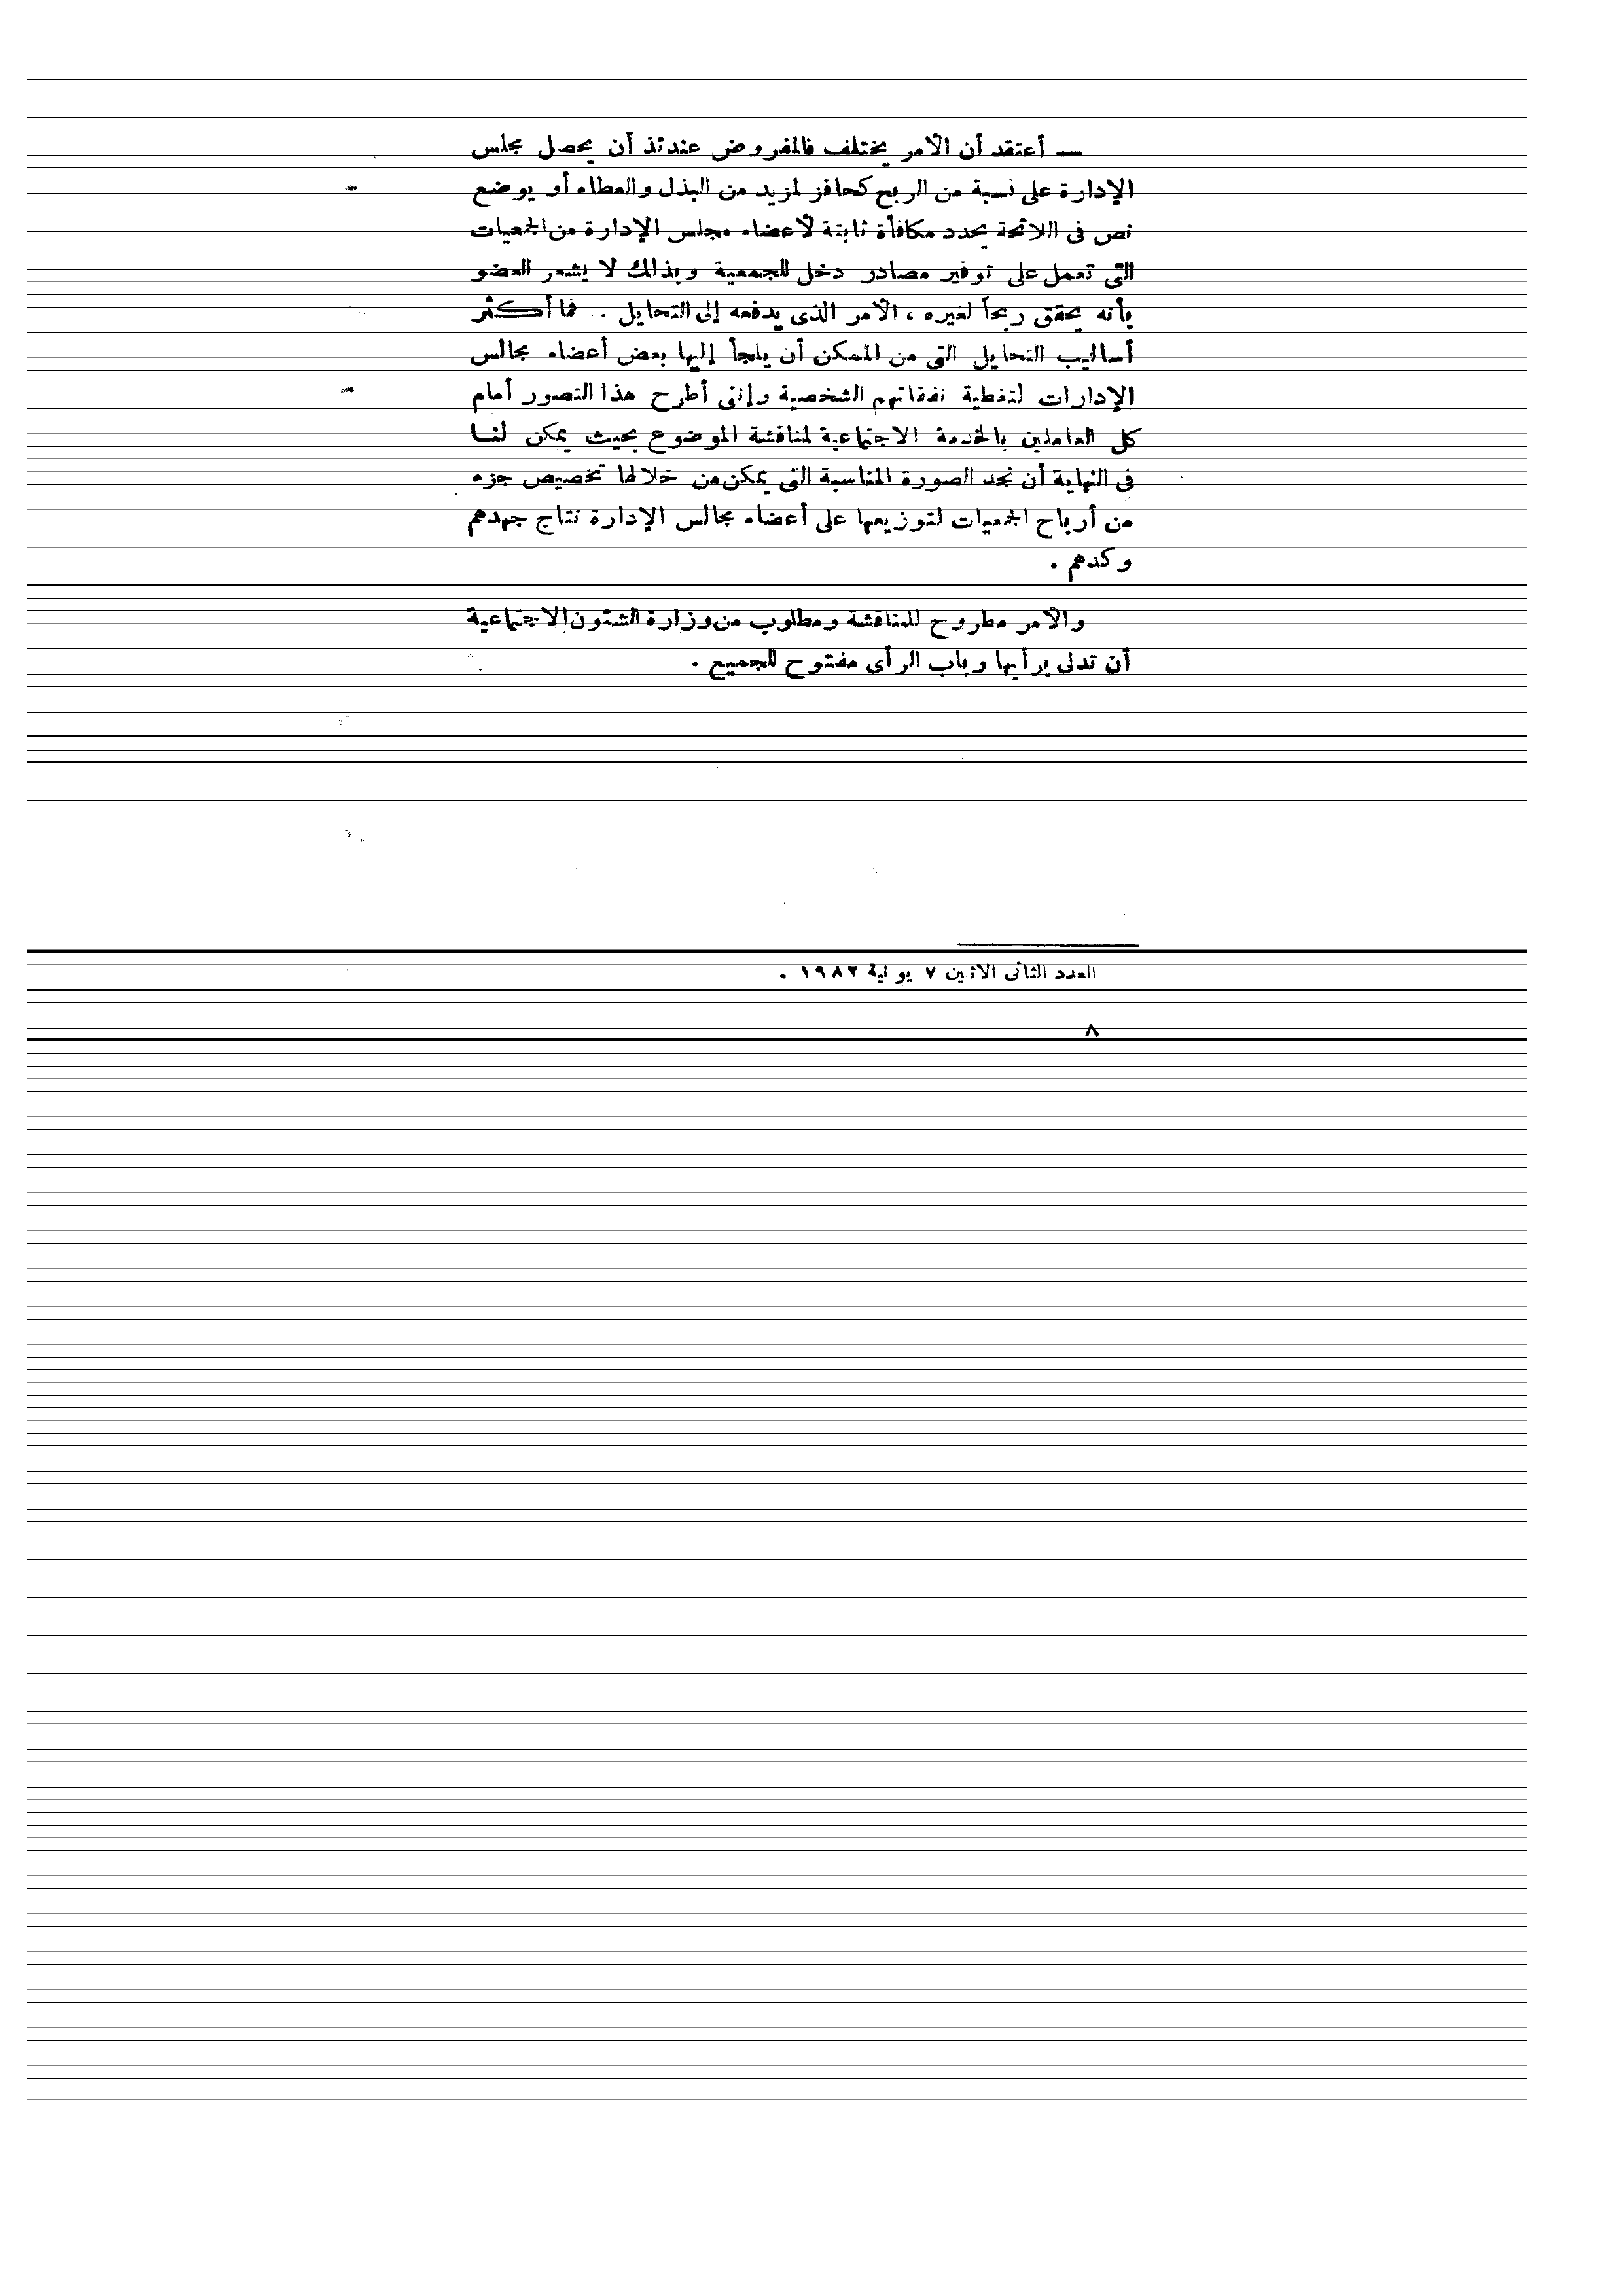 — أعتقد أن الأمر يختلف فالمفروض عندئذ أن يحصل مجلس
الإدارة على نسبة من الربح كحافز لمزيد من البذل والعطاء أو يوضع
نص فى اللائحة يحدد مكافأة ثابتة لأعضاء مجلس الإدارة من الجمعيات
التى تعمل على توفير مصادر دخل للجمعية وبذلك لا يشعر العضو
بأنه يحقق ربحاً لغيره ، الأمر الذى يدفعه إلى التحايل . فما أكثر
أساليب التحايل التى من الممكن أن يلجأ إليها بعض أعضاء مجالس
الإدارات لتغطية نفقاتهم الشخصية وإننى أطرح هذا التصور أمام
كل العاملين بالخدمة الاجتماعية لمناقشة الموضوع بحيث يمكن لنا
فى النهاية أن نجد الصورة المناسبة التى يمكن من خلالها تخصيص جزء
من أرباح الجمعيات لتوزيعها على أعضاء مجالس الإدارة نتاج جهدهم
وكدهم .
والأمر مطروح للمناقشة ومطلوب من وزارة الشئون الاجتماعية
أن تدلى برأيها وباب الرأى مفتوح للجميع .
العدد الثانى الاثنين ٧ يونية ١٩٨٢ .
٨